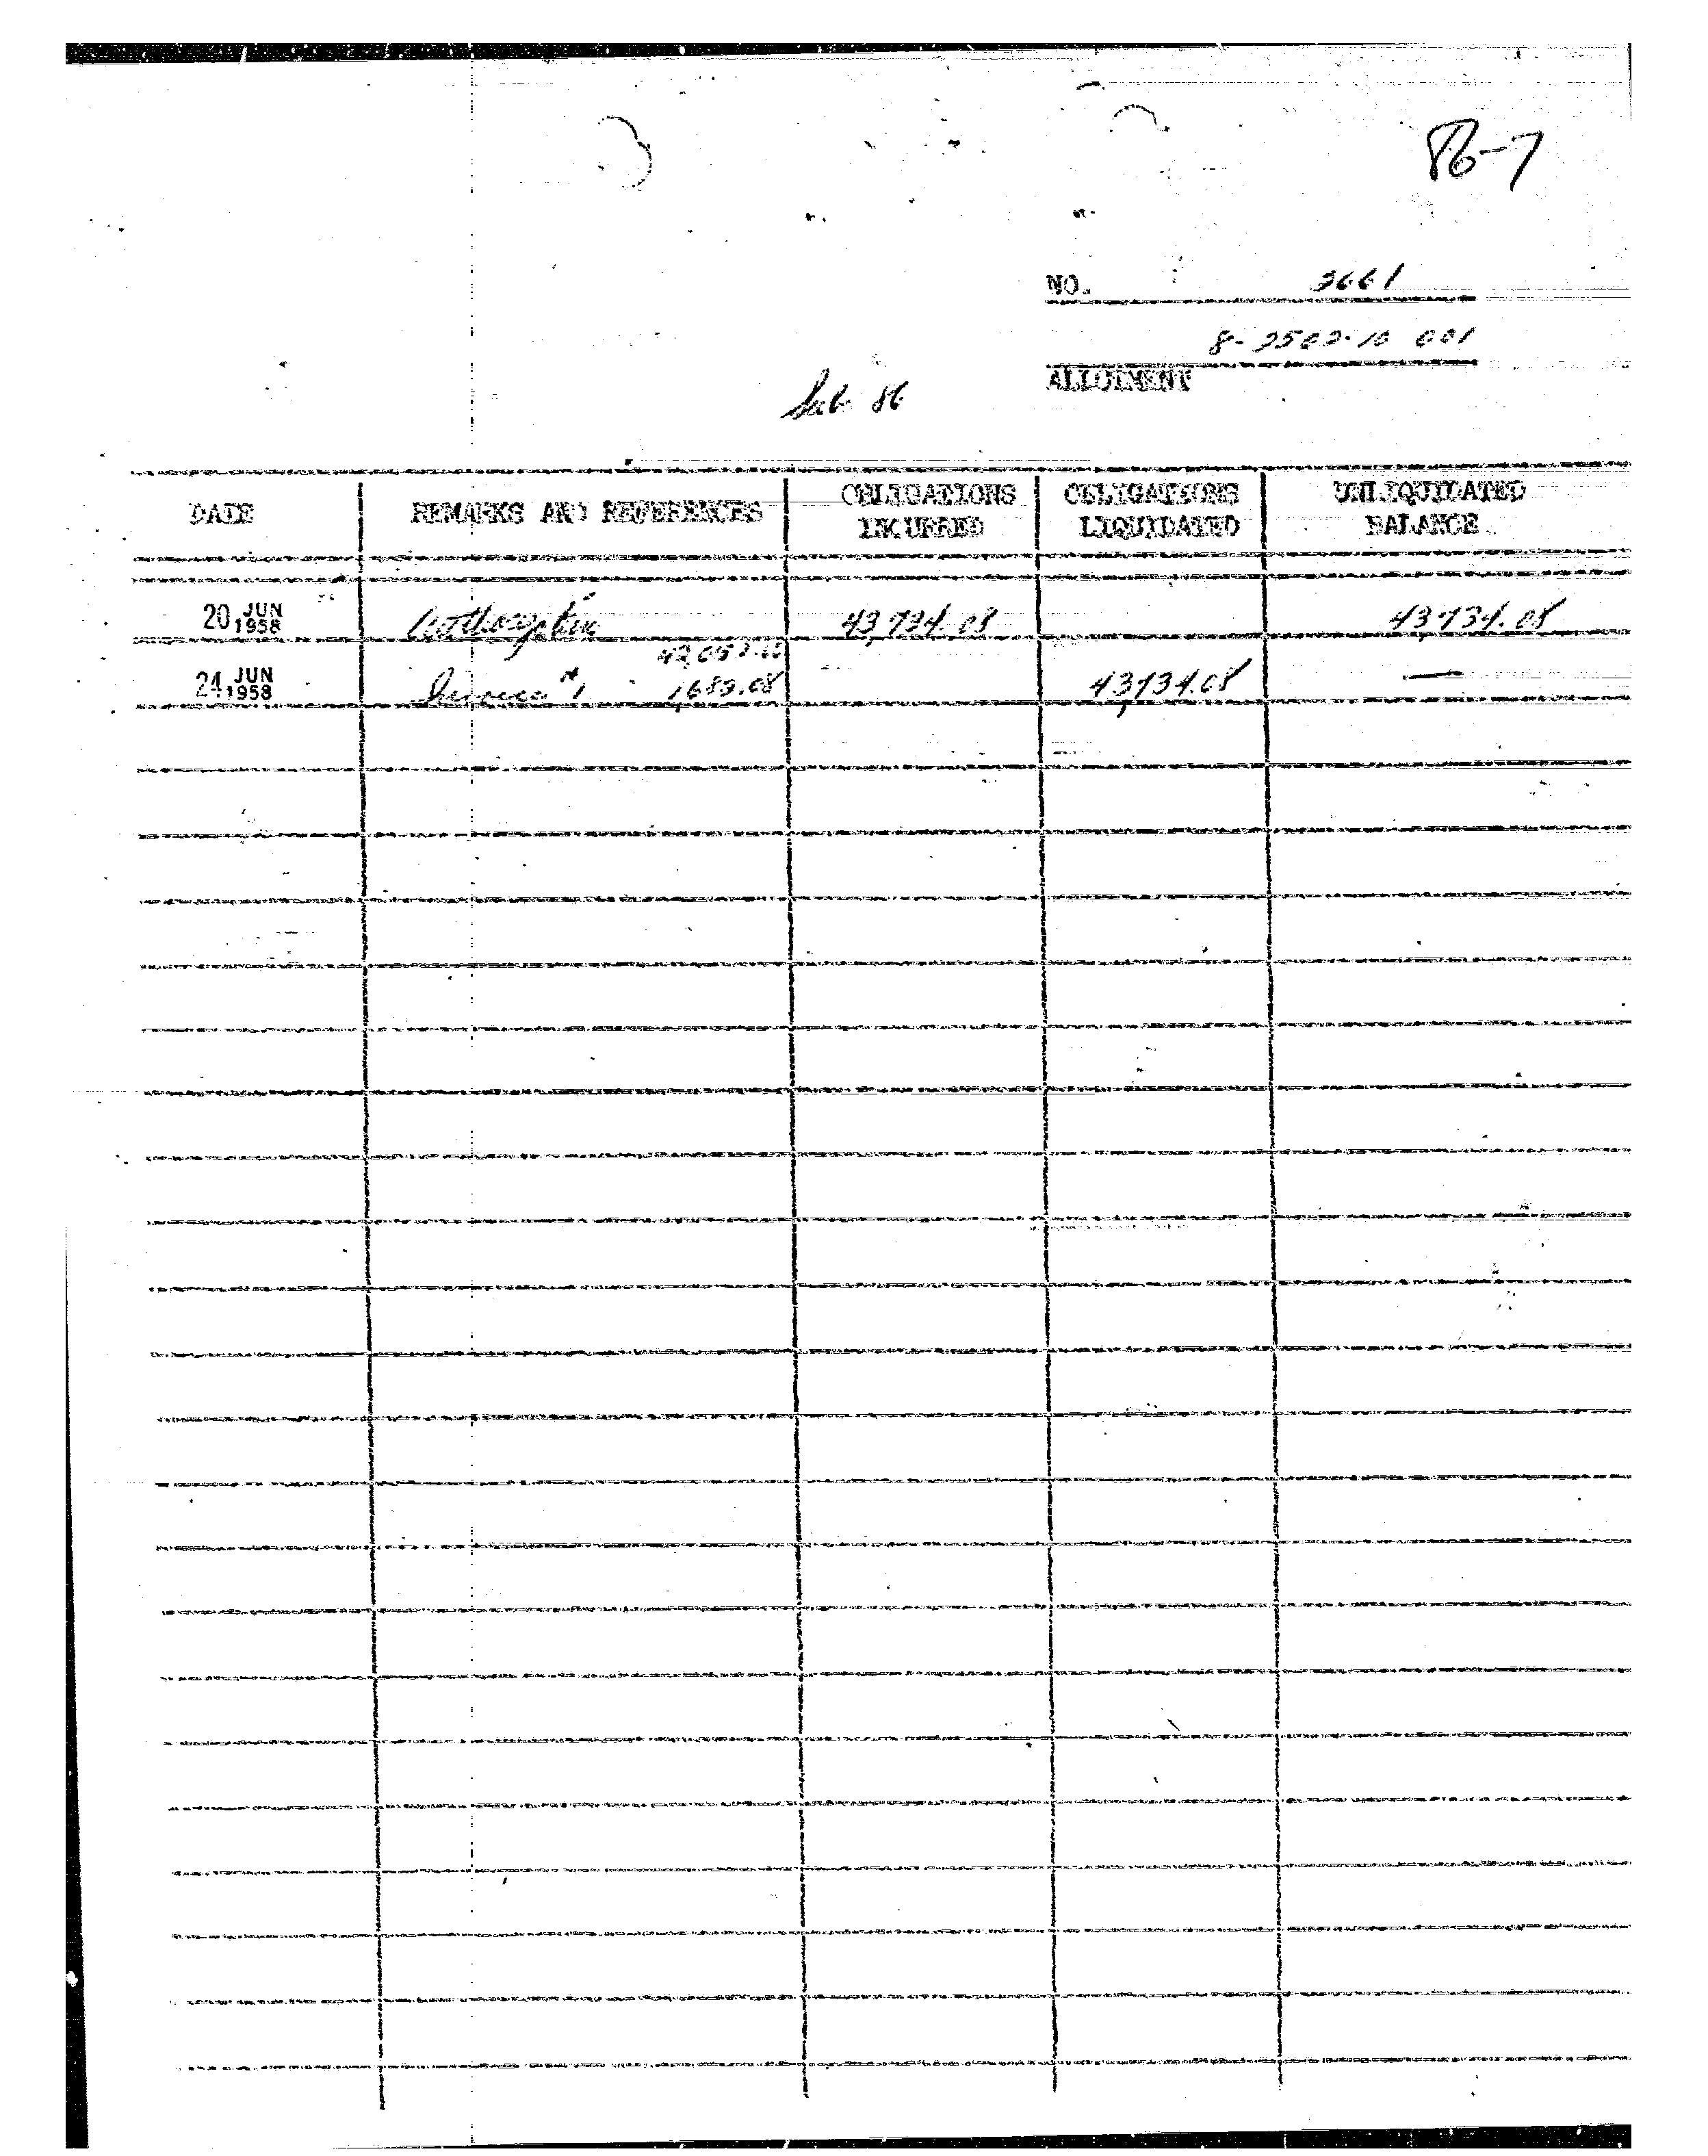 86-7
NO. 2661
8-2502-10 001
ALLOTMENT
Sub 86
DATE REMARKS AND REFERENCES OBLIGATIONS INCURRED OBLIGATIONS LIQUIDATED UNLIQUIDATED BALANCE
20 JUN 1958 43,734.08 43,734.08
24 JUN 1958 Invoice #1 1,682.08 43,734.08 —